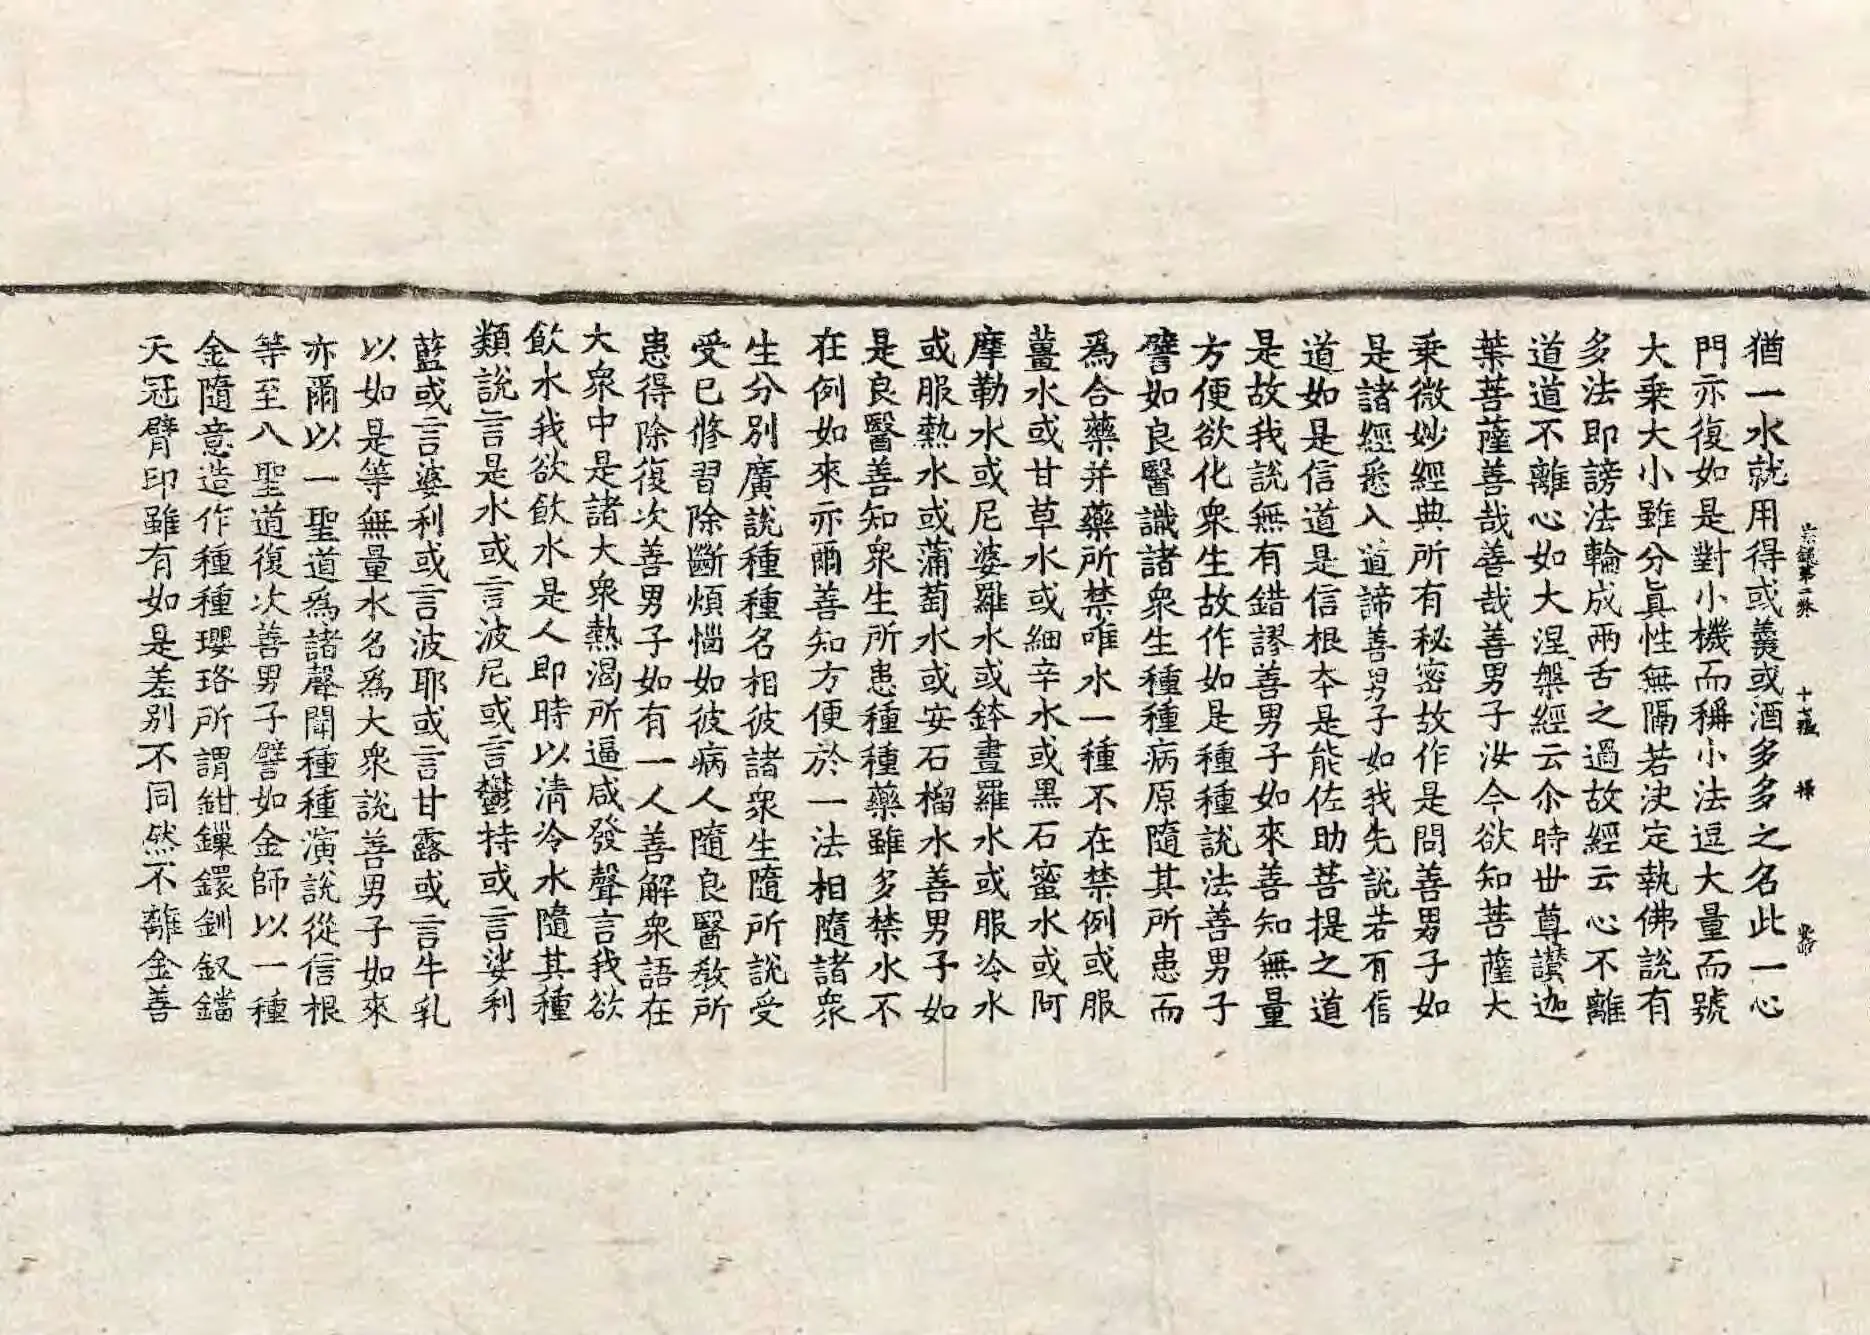 猶一水就用得或羹或酒多多之名此一心
門亦復如是對小機而稱小法逗大量而號
大乘大小雖分眞性無隔若決定執佛說有
多法即謗法輪成兩舌之過故經云心不離
道道不離心如大涅槃經云尒時世尊讃迦
葉菩薩善哉善哉善男子汝今欲知菩薩大
乘微妙經典所有秘密故作是問善男子如
是諸經悉入道諦善男子如我先說若有信
道如是信道是信根本是能佐助菩提之道
是故我說無有錯謬善男子如來善知無量
方便欲化衆生故作如是種種說法善男子
譬如良醫識諸衆生種種病原隨其所患而
爲合藥并藥所禁唯水一種不在禁例或服
薑水或甘草水或細辛水或黑石蜜水或阿
摩勒水或尼婆羅水或鉢晝羅水或服冷水
或服熱水或蒲萄水或安石榴水善男子如
是良醫善知衆生所患種種藥雖多禁水不
在例如來亦爾善知方便於一法相隨諸衆
生分別廣說種種名相彼諸衆生隨所說受
受已修習除斷煩惱如彼病人隨良醫教所
患得除復次善男子如有一人善解衆語在
大衆中是諸大衆熱渴所逼咸發聲言我欲
飲水我欲飲水是人即時以清冷水隨其種
類說言是水或言波尼或言鬱持或言娑利
藍或言婆利或言波耶或言甘露或言牛乳
以如是等無量水名爲大衆說善男子如來
亦爾以一聖道爲諸聲聞種種演說從信根
等至八聖道復次善男子譬如金師以一種
金隨意造作種種瓔珞所謂鉗鏁鐶釧釵鐺
天冠臂印雖有如是差別不同然不離金善